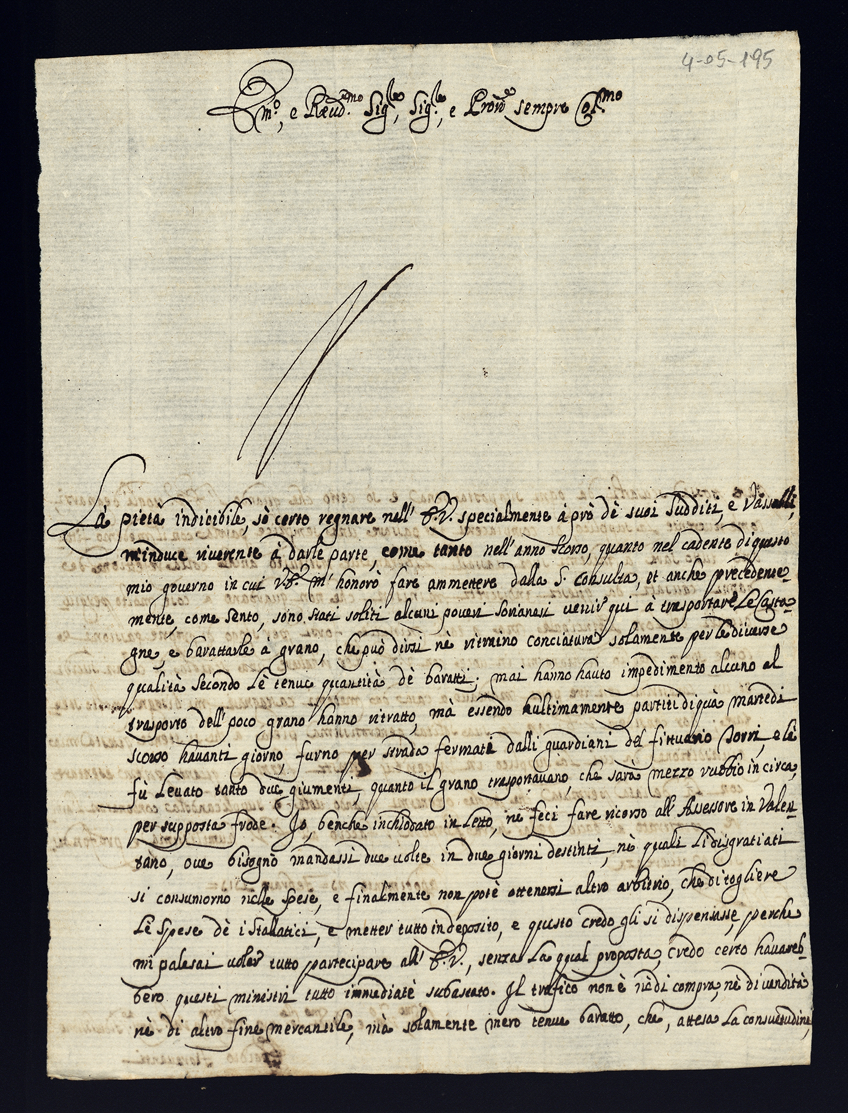 4-05-195
Em.o, e Reud.mo Sig.re, Sig.re, e Pron.e sempre Col.mo
La pietà indicibile, sò certo regnare nell' E.V. specialmente à prò dè suoi Sudditi, e Vassalli,
m'induce riuerente à darle parte, come tanto nell'anno scorso, quanto nel cadente di questo
mio gouerno in cui V.E. m'honorò fare ammettere dalla S. Consulta, et anche precedente-
mente, come sento, sono stati soliti alcuni poueri Sorianesi venir qui a trasportare Le Casta-
gne, e barattarle à grano, che può dirsi nè ritraino conciatura solamente per le diuerse
qualità secondo Lè tenue quantità dè baratti; mai hanno hauto impedimento alcuno al
trasporto dell'poco grano hanno ritratto, mà essendo hultimamente partiti di quà martedi
scorso hauanti giorno, furno per strada fermati dalli guardiani del fittuario Torri, e li
fù Leuato tanto due giumenti, quanto il grano trasportauano, che sarà mezzo rubbio in circa,
per supposta frode. Io, benche inchiodato in Letto, ne feci fare ricorso all'Assessore in Valen-
tano, oue bisognò mandassi due uolte in due giorni destinti, nè quali Li disgratiati
si consumorno nelle spese, e finalmente non potè ottenersi altro arbitrio, che di togliere
Lè spese dè i stallatici, e metter tutto in deposito, e questo credo gli si dispensasse, perche
mi palesai uoler tutto partecipare all'E.V., senza La qual proposta credo certo hauareb-
bero questi ministri tutto immediatè subastato. Il trafico non è nè di compra, nè di vendita
nè di altro fine mercantile, mà solamente mero tenue baratto, che, attesa La consuetudine,